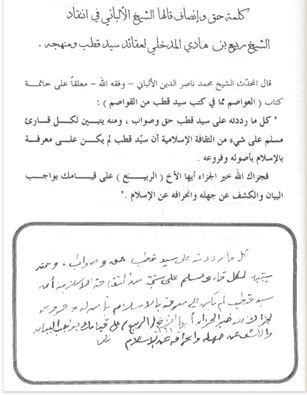 كلمة حق وإنصاف قالها الشيخ الألباني في انتقاد
الشيخ ربيع بن هادي المدخلي لعقائد سيد قطب ومنهجه .
قال المحدّث الشيخ محمد ناصر الدين الألباني – وفقه الله – معلقاً على خاتمة
كتاب ( العواصم مما في كتب سيد قطب من القواصم ) :
" كل ما رددته على سيد قطب حق وصواب ، ومنه يتبين لكل قارئ
مسلم على شيء من الثقافة الإسلامية أن سيّد قطب لم يكن على معرفة
بالإسلام بأصوله وفروعه .
فجزاك الله خير الجزاء أيها الأخ ( الربيـــع ) على قيامك بواجب
البيان والكشف عن جهله وانحرافه عن الإسلام . "
كل ما رددته على سيد قطب حق وصواب ، ومنه
يتبين لكل قارئ مسلم على شيء من الثقافة الإسلامية أن
سيد قطب لم يكن على معرفة بالإسلام بأصوله وفروعه
فجزاك الله خير الجزاء أيها الأخ ( الربيع ) على قيامك بواجب البيان
والكشف عن جهله وانحرافه عن الإسلام